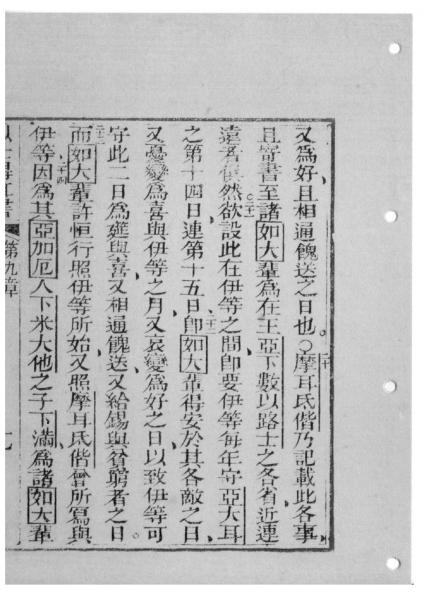 又為好且相通餽送之日也。○二十摩耳氐偕乃記載此各事
且寄書至諸如大輩為在王亞下數以路士之各省近連
遠者俱然二十一欲設此在伊等之間即要伊等每年守亞大耳
之第十四日連第十五日二十二即如大輩得安於其各敵之日
又憂變為喜與伊等之月又哀變為好之日以致伊等可
守此二日為筵與喜又相通餽送又給錫與貧窮者之日。
二十三而如大輩許恒行照伊等所始又照摩耳氐偕曾所寫與
伊等二十四因為其亞加厄人下米大他之子下滿為諸如大輩
以士得工書 第九章 七